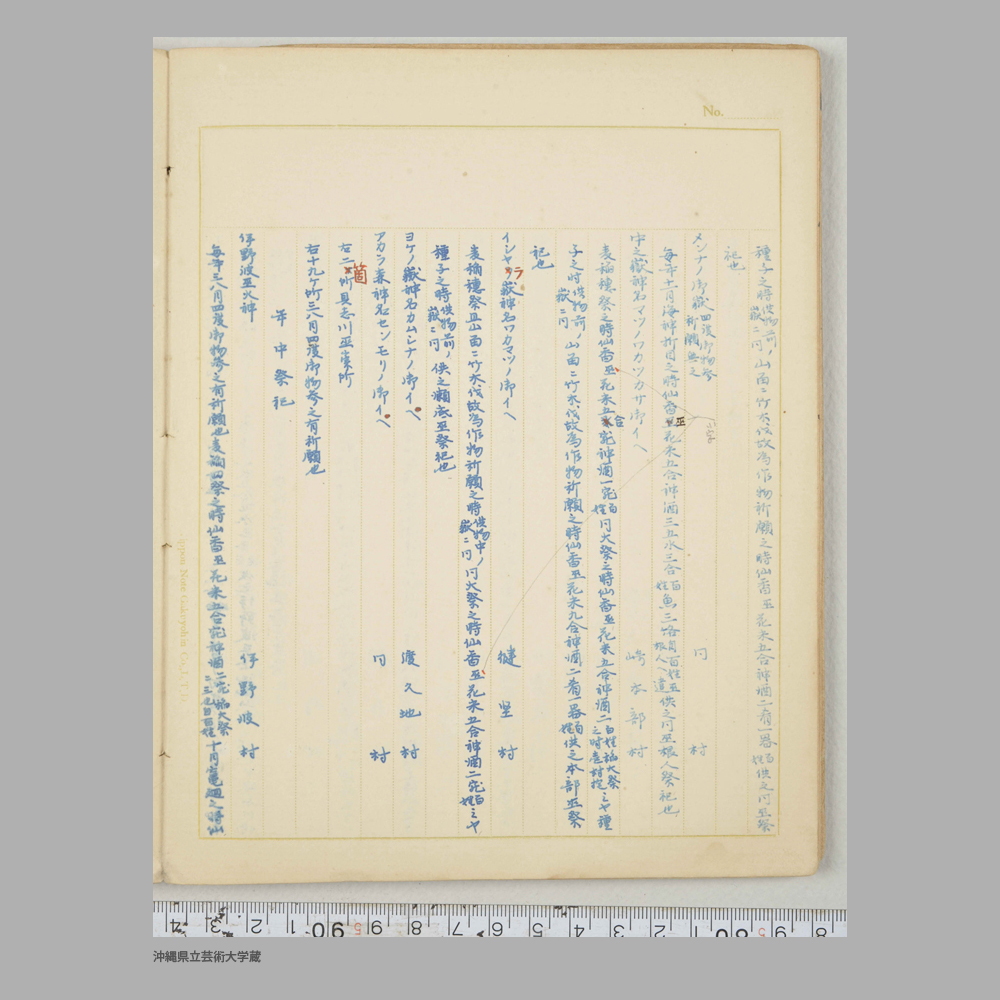 No.
種子之時供物前ノ嶽ニ同山留ニ竹木伐故為作物祈願之時仙香巫花米五合神酒二肴一器百姓供之同巫祭
祀也
メンナノ御嶽四度御物参祈願無之 同村
毎年十一月海神折目之時仙香巫花米五合神酒三五水三合百姓魚三
中之嶽神名マツノワカツカサ御イヘ 崎本部村
麦稲穂祭之時仙香巫花米五合神酒一宛百姓同大祭之時仙香巫花米五合神酒二百姓稲大祭ミヤ種
子之時供物前ノ嶽ニ同山留ニ竹木伐故為作物祈願之時仙香巫花米九合神酒二肴一器百姓供之本部巫祭
祀也
イシヤラ嶽神名ワカマツノ御イヘ 健堅村
麦稲穂祭且山留ニ竹木伐故為作物祈願之時供物中ノ嶽ニ同同大祭之時仙香巫花米五合神酒二宛百姓ミヤ
種子之時供物前ノ嶽ニ同供之瀬底巫祭祀也
ヨケノ嶽神名カムシナノ御イヘ 渡久地村
アカラ森神名センモリノ御イヘ 同村
右二箇所具志川巫崇所
右十九ケ所三八月四度御物参之有祈願也
年中祭祀
伊野波巫火神 伊野波村
毎年三八月四度御物参之有祈願也麦稲四祭之時仙香巫花米五合宛神酒二宛稲大祭ニ三百姓十月竈廻之時仙
Nippon Note Gakuyohin Co., L.T.D.
4 3 2 1 90 9 8 7 6 5 4 3 2 1 80 9 8
沖縄県立芸術大学蔵